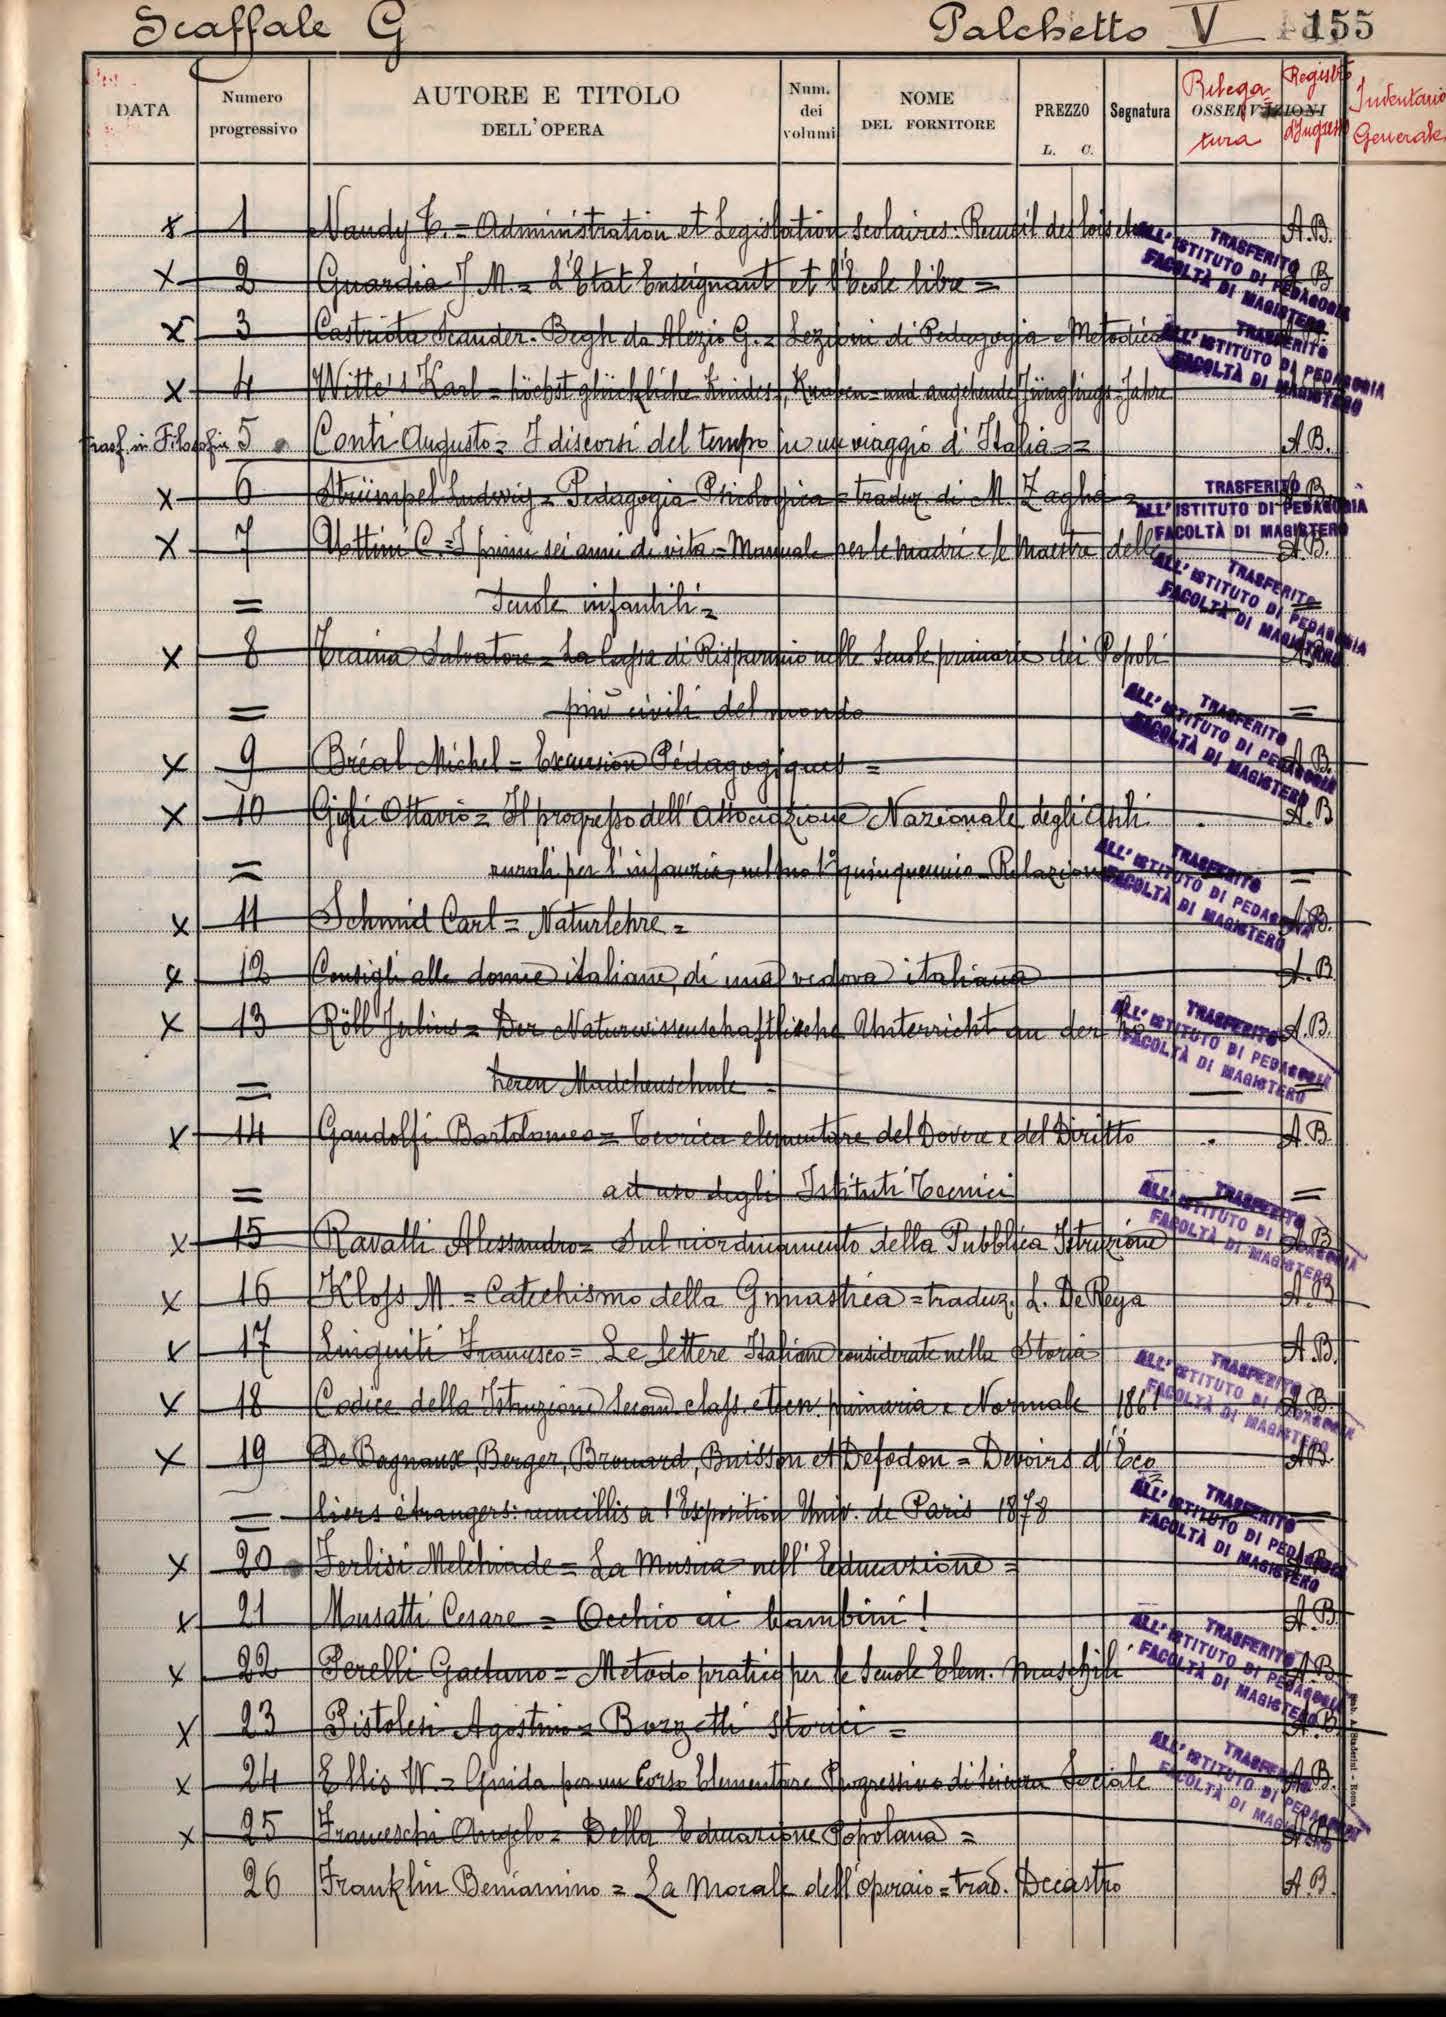 Scaffale G Palchetto V 155
DATA Numero progressivo AUTORE E TITOLO DELL'OPERA Num. dei volumi NOME DEL FORNITORE PREZZO L. C. Segnatura OSSERVAZIONI Rilegatura Registro d'Ingresso Inventario Generale
x 1 Naudy T. = Administration et Legislation Scolaires. Recueil des lois etc. A.B.
x 2 Guardia J. M. = L'Etat Enseignant et l'École libre = A.B
x 3 Castriota Scander-Begh da Alezio G. = Lezioni di Pedagogia e Metodica A.B.
x 4 Witte's Karl = höchst glückliche Kindes, Knaben = und angehende Jünglings-Jahre
trasf. in Filosofia 5 Conti Augusto = I discorsi del tempo in un viaggio d'Italia = A.B.
x 6 Strümpel Ludwig = Pedagogia Psicologica = traduz. di M. Zaglia = A.B
x 7 Uttini C. = I primi sei anni di vita = Manuale per le madri e le maestre delle A.B.
= Scuole infantili = =
x 8 Traina Salvatore = La Cassa di Risparmio nelle Scuole primarie dei Popoli A.B.
= più civili del mondo =
x 9 Bréal Michel = Excursion Pédagogiques = A.B.
x 10 Gigli Ottavio = Il progresso dell'Associazione Nazionale degli Asili A.B
= rurali per l'infanzia, nel suo 1° quinquennio - Relazione =
x 11 Schmid Carl = Naturlehre = A.B.
x 12 Consigli alle donne italiane, di una vedova italiana A.B
x 13 Röll Julius = Der Naturwissenschaftliche Unterricht an der hö A.B.
= heren Mädchenschule = =
x 14 Gandolfi Bartolomeo = Teorica elementare del Dovere e del Diritto A.B.
= ad uso degli Istituti Tecnici =
x 15 Ravalli Alessandro = Sul riordinamento della Pubblica Istruzione A.B
x 16 Kloss M. = Catechismo della Gnnastica = traduz. L. De Reya A.B
x 17 Linguiti Francesco = Le Lettere Italiane considerate nella Storia A.B.
x 18 Codice della Istruzione Second. class. e tecn. primaria e Normale 1861 A.B.
x 19 De Bagnaux, Berger, Brouard, Buisson et Defodon = Devoirs d'Éco A.B.
= liers étrangers: recueillis a l'Exposition Univ. de Paris 1878 =
x 20 Ferlisi Melchiade = La Musica nell'Educazione = A.B
x 21 Musatti Cesare = Occhio ai bambini! A.B
x 22 Perelli Gaetano = Metodo pratico per le Scuole Elem. maschili A.B
x 23 Pistolesi Agostino = Bozzetti Storici = A.B
x 24 Ellis W. = Guida per un Corso Elementare Progressivo di Scienza Sociale A.B.
x 25 Franceschi Angelo = Della Educazione Popolana = A.B
26 Franklin Beniamino = La Morale dell'operaio = trad. Decastro A.B.
TRASFERITO
ALL'ISTITUTO DI PEDAGOGIA
FACOLTÀ DI MAGISTERO
TRASFERITO
ALL'ISTITUTO DI PEDAGOGIA
FACOLTÀ DI MAGISTERO
TRASFERITO
ALL'ISTITUTO DI PEDAGOGIA
FACOLTÀ DI MAGISTERO
TRASFERITO
ALL'ISTITUTO DI PEDAGOGIA
FACOLTÀ DI MAGISTERO
TRASFERITO
ALL'ISTITUTO DI PEDAGOGIA
FACOLTÀ DI MAGISTERO
TRASFERITO
ALL'ISTITUTO DI PEDAGOGIA
FACOLTÀ DI MAGISTERO
TRASFERITO
ALL'ISTITUTO DI PEDAGOGIA
FACOLTÀ DI MAGISTERO
TRASFERITO
ALL'ISTITUTO DI PEDAGOGIA
FACOLTÀ DI MAGISTERO
TRASFERITO
ALL'ISTITUTO DI PEDAGOGIA
FACOLTÀ DI MAGISTERO
TRASFERITO
ALL'ISTITUTO DI PEDAGOGIA
FACOLTÀ DI MAGISTERO
TRASFERITO
ALL'ISTITUTO DI PEDAGOGIA
FACOLTÀ DI MAGISTERO
TRASFERITO
ALL'ISTITUTO DI PEDAGOGIA
FACOLTÀ DI MAGISTERO